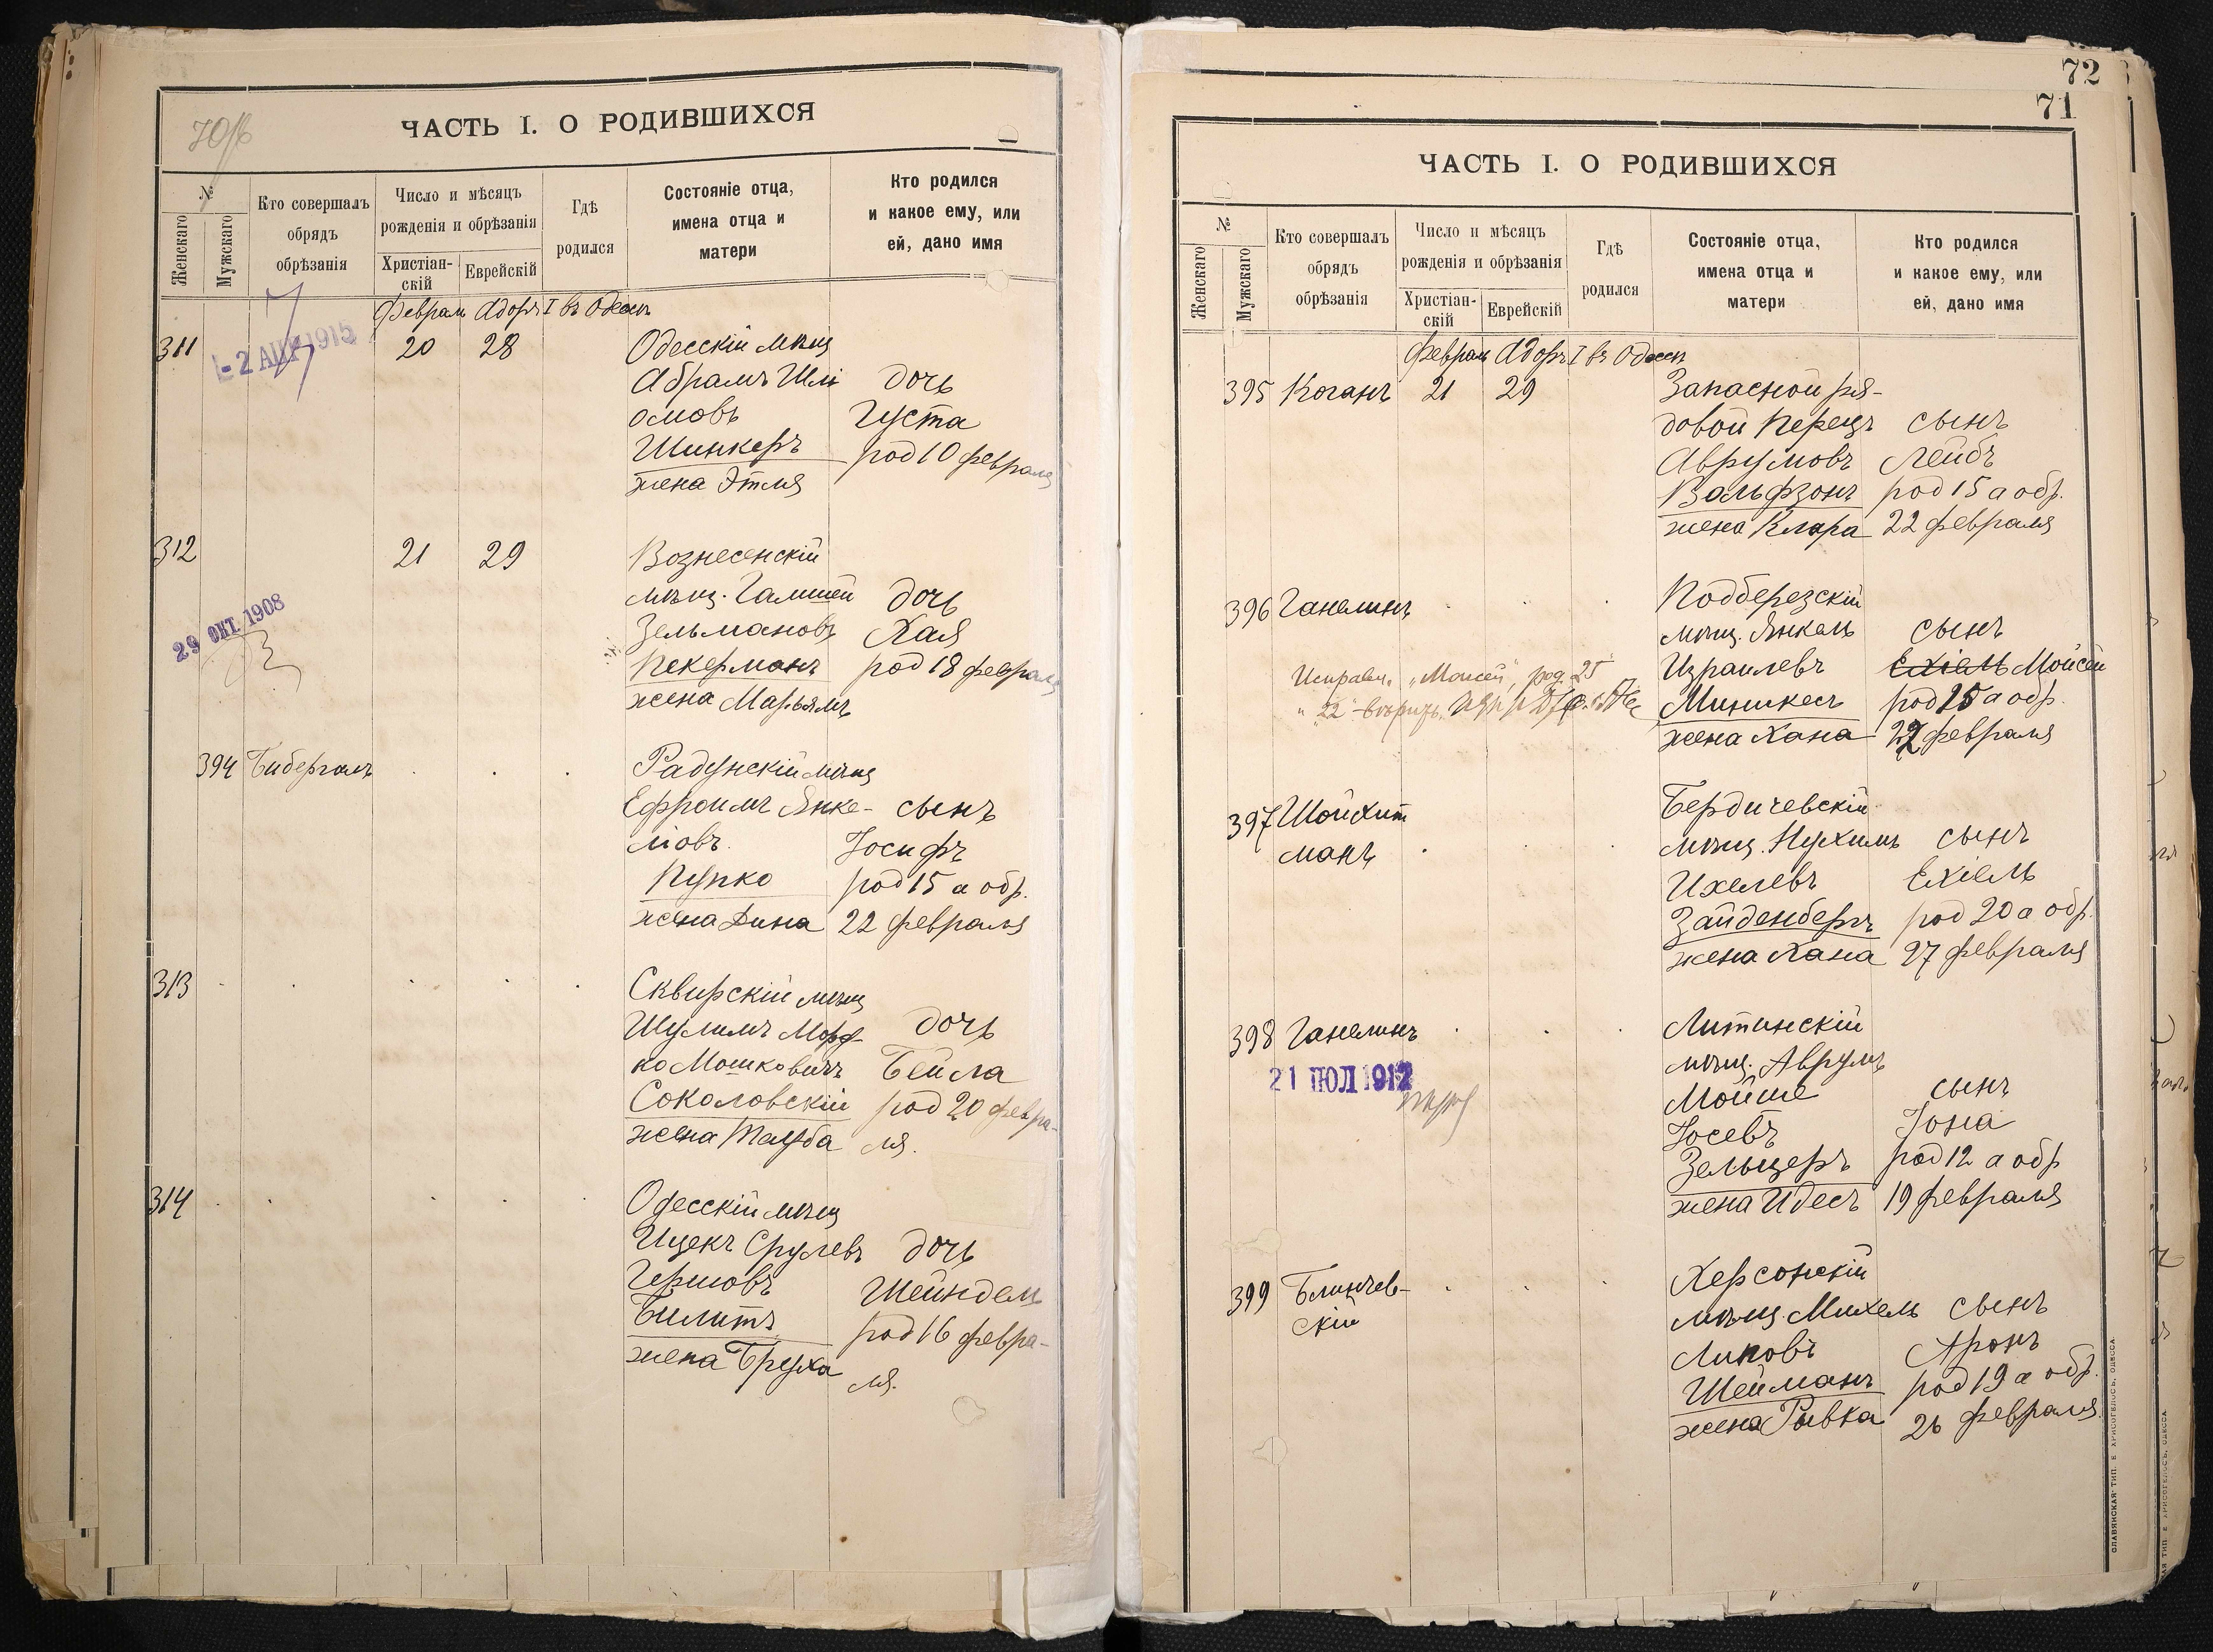 ЧАСТЬ I. О РОДИВШИХСЯ
№
Женскаго
Мужскаго
Кто совершалъ
обрядъ
обрѣзанія
Число и мѣсяцъ
рожденія и обрѣзанія
Христіан-
скій
Еврейскій
Гдѣ
родился
Состояніе отца,
имена отца и
матери
Кто родился
и какое ему, или
ей, дано имя
Февраль Адоръ I въ Одессѣ
311 20 28 Одесскій мѣщ
-2 АПР 1915
Абрамъ Шлі дочь
омовъ Густа
Шинкеръ род 10 февраля
жена Этля
312 21 29 Вознесенскій
мѣщ. дочь
29 ОКТ. 1908
Зельмановъ Хая
Пекерманъ род 18 февраля
жена Марьямъ
394 Бибергалъ Радунскій мѣщ
Ефроимъ Янке- сынъ
лювъ Іосифъ
Пупко род 15 а обр.
жена Дина 22 февраля
313 Сквирскій мѣщ
Шулимъ Морд дочь
ко Мошковичъ Бейла
Соколовскій род 20 февра-
жена Тауба ля.
314 Одесскій мѣщ
Ицекъ Срулевъ дочь
Гершовъ Шейндель
Билитъ род 16 февра-
жена Бруха ля.
72
71
ЧАСТЬ I. О РОДИВШИХСЯ
№
Женскаго
Мужскаго
Кто совершалъ
обрядъ
обрѣзанія
Число и мѣсяцъ
рожденія и обрѣзанія
Христіан-
скій
Еврейскій
Гдѣ
родился
Состояніе отца,
имена отца и
матери
Кто родился
и какое ему, или
ей, дано имя
Февраль Адоръ I въ Одессѣ
395 Коганъ 21 29 Запасной ря-
довой Перецъ сынъ
Аврумовъ Лейбъ
Вольфзонъ род 15 а обр.
жена Клара 22 февраля
396 Ганелинъ Подберезскій
мѣщ. Янкель сынъ
Израилевъ Ехіель Мойсей
Исправл. "Моисей", род. 25
Миникесъ род 15 а обр.
"22" вѣрить.
жена Хана 22 февраля
397 Шойхит Бердичевскій
манъ мѣщ. Нухимъ сынъ
Ихелевъ Ехіель
Зайденбергъ род 20 а обр.
жена Хана 27 февраля
398 Ганелинъ Литинскій
21 ІЮЛ 1912
мѣщ. Аврумъ
Мойше сынъ
Іосевъ Іона
Зельцеръ род 12 а обр
жена Идесъ 19 февраля
399 Блинчев- Херсонскій
скій мѣщ. Михель сынъ
Липовъ Аронъ
Шейманъ род 19 а обр.
жена Ривка 26 февраля
СЛАВЯНСКАЯ ТИП. Е. ХРИСОГЕЛОСЪ, ОДЕССА